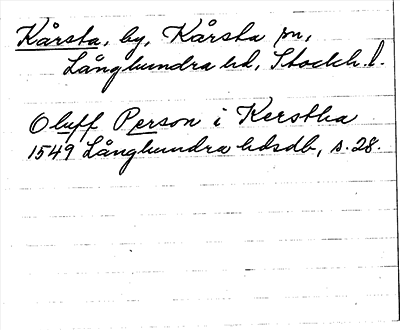 Kårsta, by, Kårsta sn,
Långhundra hd, Stockh. l.
Oluff Person i Kerstha
1549 Långhundra hdsdb, s. 28.